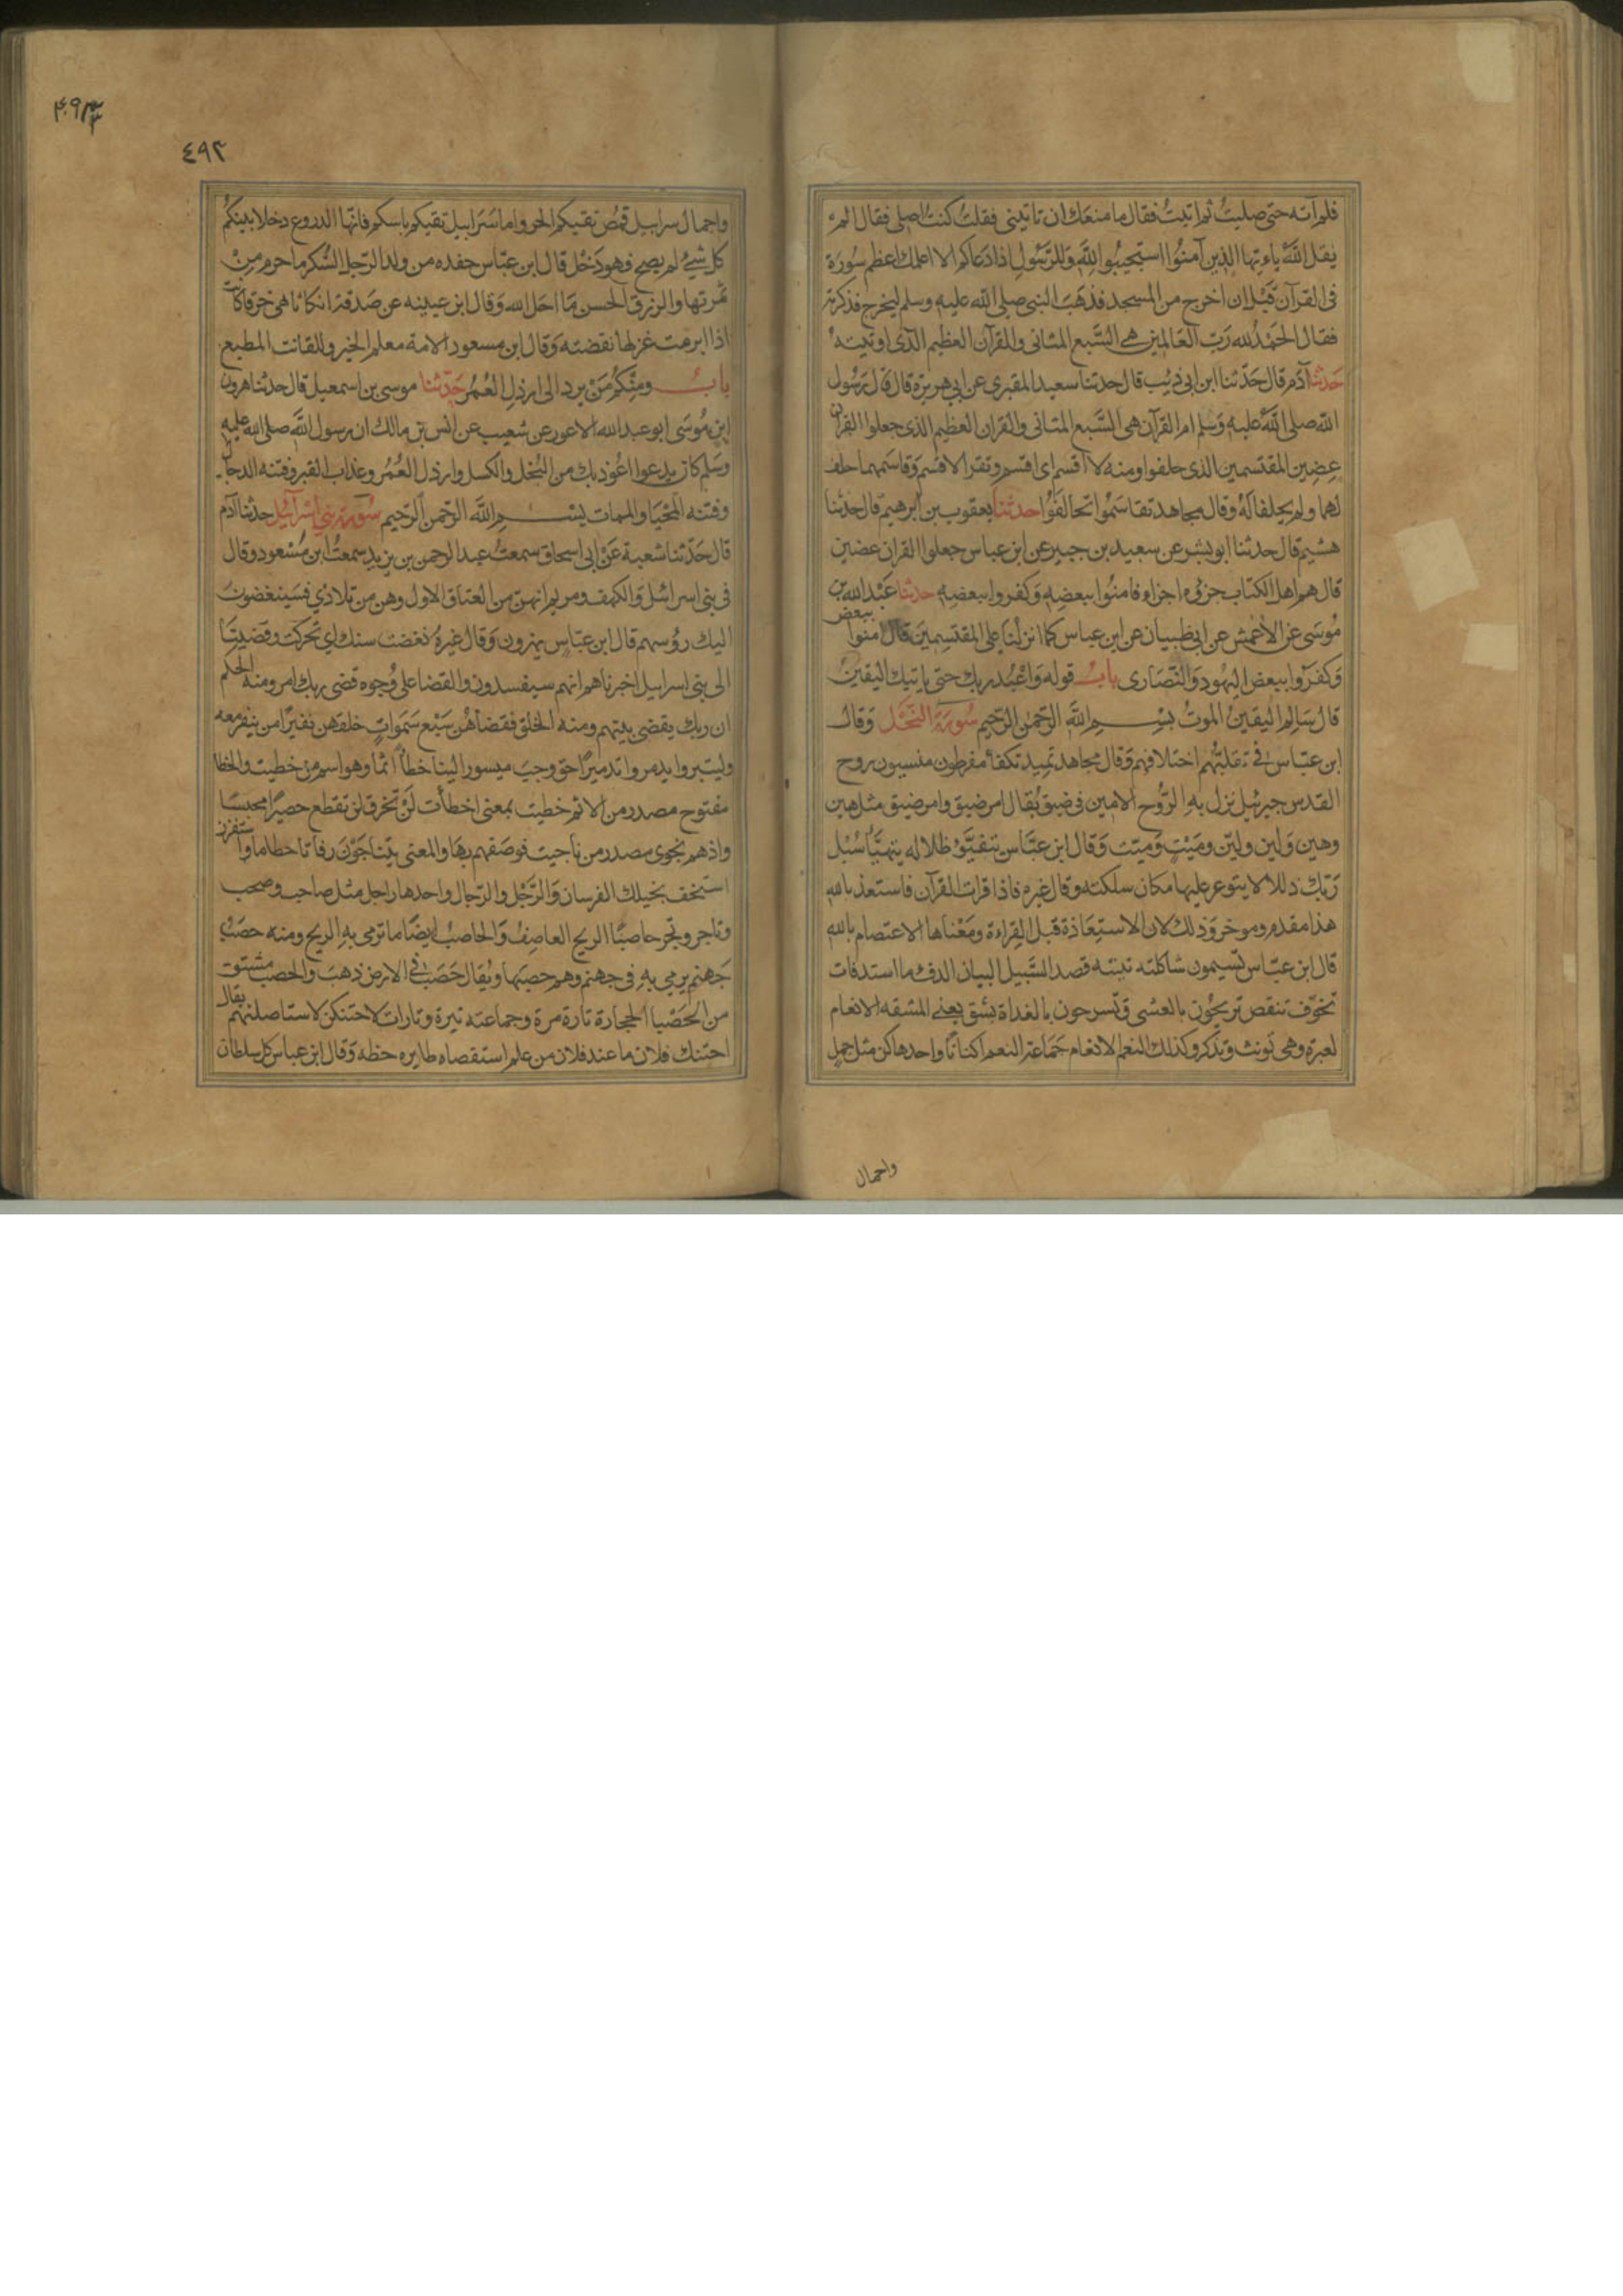 فلم آته حتى صليت ثم اتيت فقال ما منعك ان تاتيني فقلت كنت اصلي فقال الم
يقل الله ياءيها الذين آمنوا استجيبوا لله وللرسول اذا دعاكم الا اعلمك اعظم سورة
في القرآن قبل ان اخرج من المسجد فذهب النبي صلى الله عليه وسلم ليخرج فذكرته
فقال الحمد لله رب العالمين هي السبع المثاني والقرآن العظيم الذي اوتيته
حدثنا آدم قال حدثنا ابن ابي ذيب قال حدثنا سعيد المقبري عن ابي هريرة قال قال رسول
الله صلى الله عليه وسلم ام القرآن هي السبع المثاني والقران العظيم الذي جعلوا القران
عضين المقتسمين الذي حلفوا ومنه لا اقسم اي اقسم وتقرا لاقسم وقاسمهما حلف
لهما ولم يحلفا له وقال مجاهد تقاسموا تحالفوا حدثنا يعقوب بن ابرهيم قال حدثنا
هشيم قال حدثنا ابو بشر عن سعيد بن جبير عن ابن عباس جعلوا القران عضين
قال هم اهل الكتاب جزؤه اجزاء فامنوا ببعضه وكفروا ببعضه حدثنا عبد الله بن
موسى عن الاعمش عن ابي ظبيان عن ابن عباس كما انزلنا على المقتسمين قال امنوا ببعض
وكفروا ببعض اليهود والنصارى باب قوله واعبد ربك حتى ياتيك اليقين
قال سالم اليقين الموت بسم الله الرحمن الرحيم سورة النحل وقال
ابن عباس في تقلبهم اختلافهم وقال مجاهد تميد تكفأ مفرطون منسيون روح
القدس جبرئيل نزل به الروح الامين في ضيق يقال امر ضيق وامر ضيق مثل هين
وهين ولين ولين وميت وميت وقال ابن عباس تتفيؤ ظلاله يتهيأ سبل
ربك ذللا لا يتوعر عليها مكان سلكته وقال غيره فاذا قرات القرآن فاستعذ بالله
هذا مقدم وموخر وذلك لان الاستعاذة قبل القراءة ومعناها الاعتصام بالله
قال ابن عباس تسيمون شاكلته نيته قصد السبيل البيان الدفء ما استدفات
تخوف تنقص تريحون بالعشي وتسرحون بالغداة بشق يعني المشقه الانعام
لعبرة وهي تونث وتذكر وكذلك النعم الانعام جماعة النعم اكنانا واحدها كن مثل حمل
واحمال
٤٩٣
٤٩٣
واحمال سرابيل قمص تقيكم الحر واما سرابيل تقيكم باسكم فانها الدروع دخلا بينكم
كل شيء لم يصح فهو دخل قال ابن عباس حفده من ولد الرجل السكر ما حرم من
ثمرتها والرزق الحسن ما احل الله وقال ابن عيينه عن صدقة انكاثا هي خرقا كانت
اذا ابرمت غزلها نقضته وقال ابن مسعود الامة معلم الخير والقانت المطيع
باب ومنكم من يرد الى ارذل العمر حدثنا موسى بن اسمعيل قال حدثنا هرون
ابن موسى ابو عبد الله الاعور عن شعيب عن انس بن مالك ان رسول الله صلى الله عليه
وسلم كان يدعوا اعوذ بك من البخل والكسل وارذل العمر وعذاب القبر وفتنه الدجال
وفتنه المحيا والممات بسم الله الرحمن الرحيم سورة بني اسرآئيل حدثنا آدم
قال حدثنا شعبة عن ابي اسحاق سمعت عبد الرحمن بن يزيد سمعت ابن مسعود وقال
في بني اسرائيل والكهف ومريم انهن من العتاق الاول وهن من تلادي فسينغضون
اليك رؤسهم قال ابن عباس يهزون وقال غيره نغضت سنك اي تحركت وقضيتا
الى بني اسرايل اخبرناهم انهم سيفسدون والقضا على وجوه قضى ربك امر ومنه الحكم
ان ربك يقضي بينهم ومنه الخلق فقضاهن سبع سموات خلقهن نفيرا من ينفر معه
وليتبروا يدمروا تدميرا حق وجب ميسورا لينا خطأ اثما وهو اسم من خطيت والخطا
مفتوح مصدر من الاثم خطيت بمعنى اخطأت لن تخرق لن تقطع حصيرا محبسا
واذ هم نجوى مصدر من ناجيت فوصفهم بها والمعنى يتناجون رفاتا حطاما واستفزز
استخف بخيلك الفرسان والرجل والرجال واحدها راجل مثل صاحب وصحب
وتاجر وتجر حاصبا الريح العاصف والحاصب ايضا ما ترمي به الريح ومنه حصب
جهنم يرمي به في جهنم وهو حصبها ويقال حصب في الارض ذهب والحصب مشتق
من الحصبا الحجارة تارة مرة وجماعته تيرة وتارات لاحتنكن لاستاصلنهم يقال
احتنك فلان ما عند فلان من علم استقصاه طايره حظه وقال ابن عباس كل سلطان